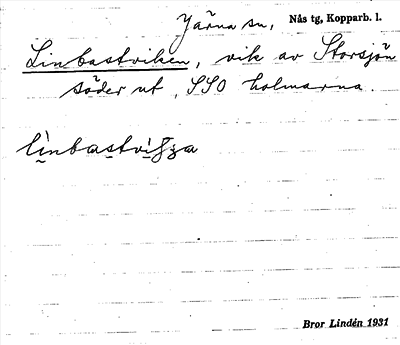 Järna sn, Nås tg, Kopparb. l.
Linbastviken, vik av Storsjön
söder ut, SSO holmarna.
Bror Lindén 1931